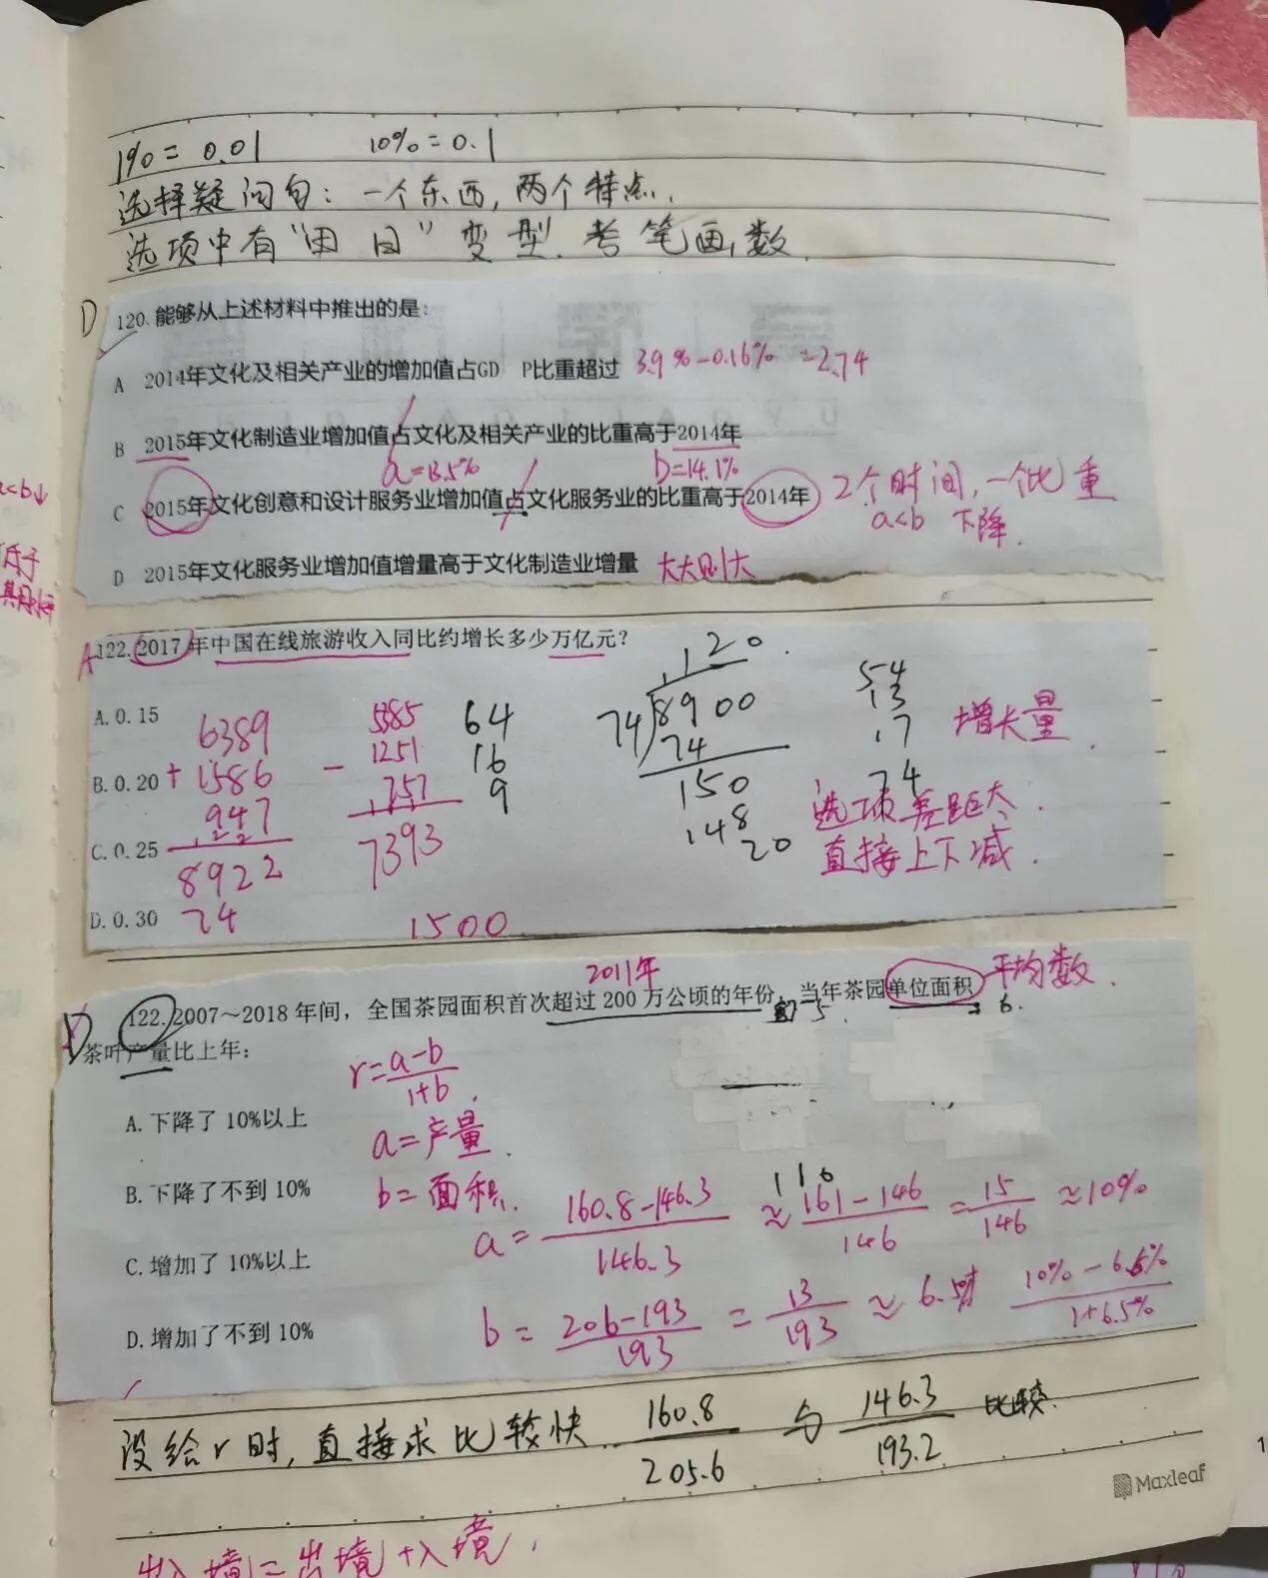 1% = 0.01 10% = 0.1
选择疑问句：一个东西，两个特点.
选项中有“田 日”变型.考笔画数.
D
120.能够从上述材料中推出的是：
A 2014年文化及相关产业的增加值占GD P比重超过 3.9%-0.16% =2.74
B 2015年文化制造业增加值占文化及相关产业的比重高于2014年
a=13.5% b=14.1%
C 2015年文化创意和设计服务业增加值占文化服务业的比重高于2014年 2个时间,一个比重
a<b 下降.
a<b↓
D 2015年文化服务业增加值增量高于文化制造业增量 大大则大
低于
A
122. 2017年中国在线旅游收入同比约增长多少万亿元？
A. 0.15
B. 0.20
C. 0.25
D. 0.30
6389
+ 1586
947
8922
74
585
- 1251
757
7393
1500
64
16
9
120.
74 8900
74
150
148
20
54
13
17
74
增长量.
选项差距大.
直接上下减.
2011年
平均数.
122. 2007～2018 年间，全国茶园面积首次超过 200 万公顷的年份，当年茶园单位面积
茶叶产量比上年：
A. 下降了 10%以上
B. 下降了不到 10%
C. 增加了 10%以上
D. 增加了不到 10%
r=a-b
1+b.
a=产量.
b=面积.
116
a= 160.8-146.3 ≈ 161-146 = 15 ≈10%
146.3 146 146
b = 206-193 = 13 ≈ 6. 10%-6.5%
193 193 1+6.5%
没给r时,直接求比较快 160.8 与 146.3 比较.
205.6 193.2
Maxleaf
出入境=出境+入境.